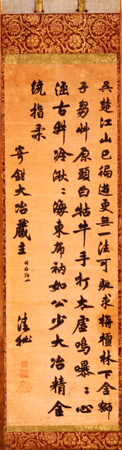 吳楚江山已徧遊更無一法可馳求栴檀林下金獅
子芳艸原頭白牯牛手打太虛鳴嚗嚗心
涵古井冷湫湫海東布衲如公少大冶精金
繞指柔
寄鉗大冶藏主